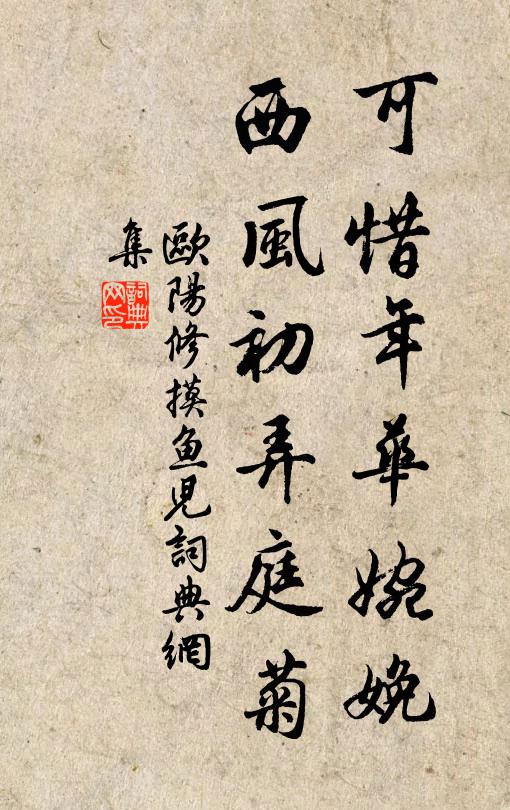 可惜年華婉娩
西風初弄庭菊
歐陽修摸魚児詞典網
集
詞典網印